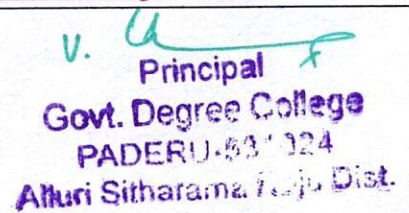 V.
Principal
Govt. Degree College
PADERU-
Alluri Sitharama Dist.